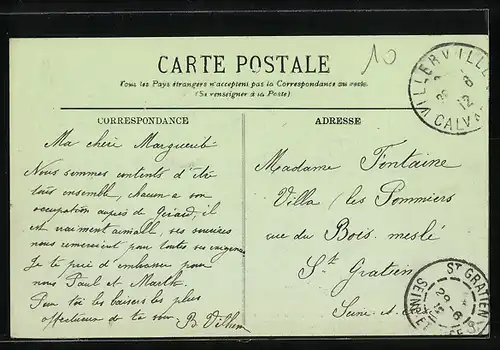 CARTE POSTALE
10
Tous les Pays étrangers n'acceptent pas la Correspondance au recto.
(Se renseigner à la Poste)
CORRESPONDANCE
ADRESSE
Ma chère Marguerite
Nous sommes contents d'être
tous ensemble, chacun a son
occupation auprès de Gérard, il
est vraiment aimable, ses sourires
nous remercient pour toutes ses exigences
Je te prie d'embrasser pour
nous Paul et Marthe
Pour toi les baisers les plus
affectueux de ta B.
Madame Fontaine
Villa les Pommiers
rue du Bois meslé
St Gratien
Seine et
VILLERVILLE
6
12
CALVA
ST GRATIEN
SEINE ET
6